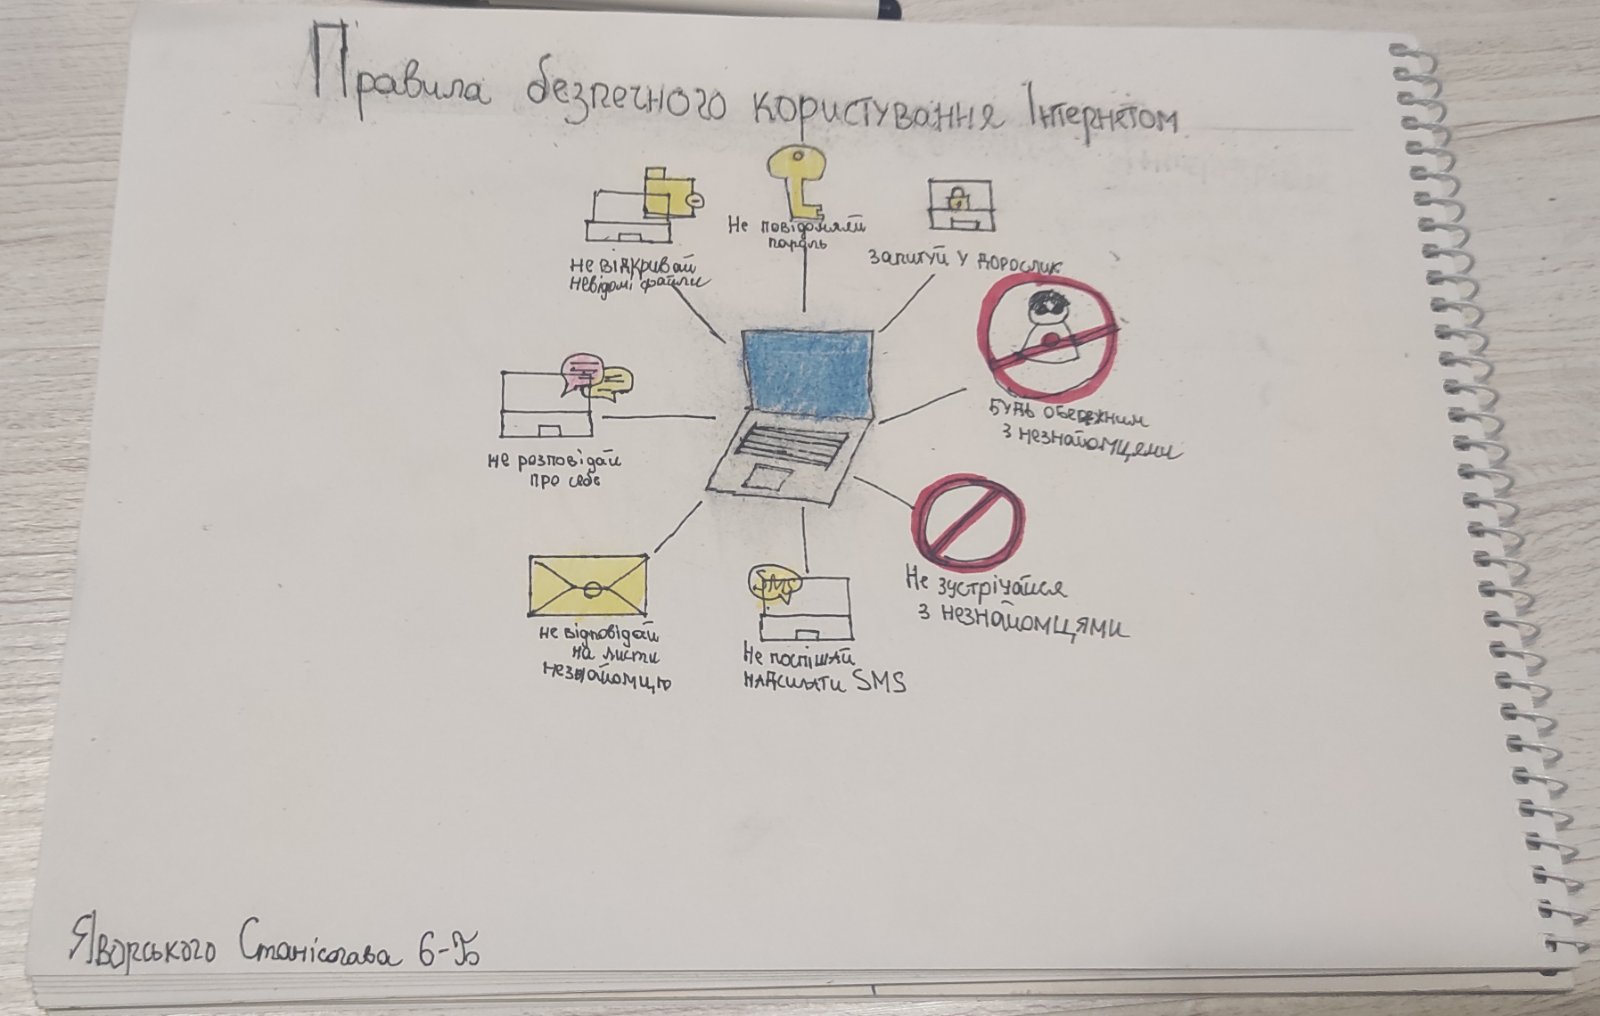 Правила безпечного користування Інтернетом
Не відкривай
невідомі файли
Не повідомляй
пароль
Запитуй у дорослих
Будь обережним
з незнайомцями
не розповідай
про себе
Не зустрічайся
з незнайомцями
SMS
не відповідай
на листи
незнайомцю
Не поспішай
надсилати SMS
Яворського Станіслава 6-Б